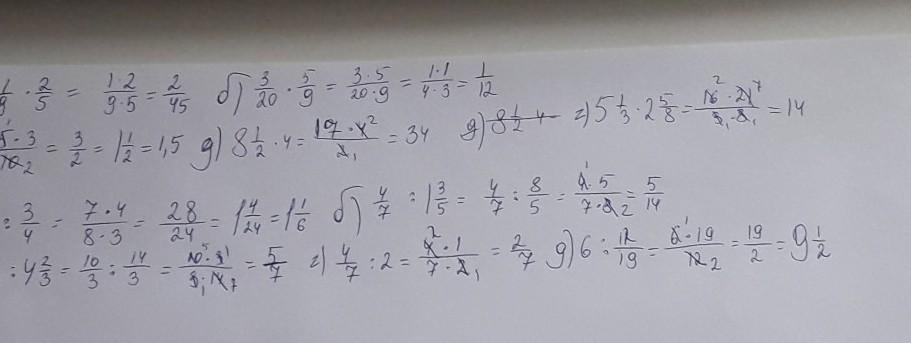 1/9 · 2/5 = 1·2/9·5 = 2/45 б) 3/20 · 5/9 = 3·5/20·9 = 1·1/4·3 = 1/12
5·3/10 2 = 3/2 = 1 1/2 = 1,5 д) 8 1/2 · 4 = 17·4 2/2 1 = 34 д) 8 1/2 4 г) 5 1/3 · 2 5/8 = 16 2 · 21 7/3 1 · 8 1 = 14
: 3/4 = 7·4/8·3 = 28/24 = 1 4/24 = 1 1/6 б) 4/7 : 1 3/5 = 4/7 : 8/5 = 4 1 · 5/7·8 2 = 5/14
: 4 2/3 = 10/3 : 14/3 = 10 5 · 3 1/3 1 · 14 7 = 5/7 г) 4/7 : 2 = 4 2 · 1/7·2 1 = 2/7 д) 6 : 12/19 = 6 1 · 19/12 2 = 19/2 = 9 1/2